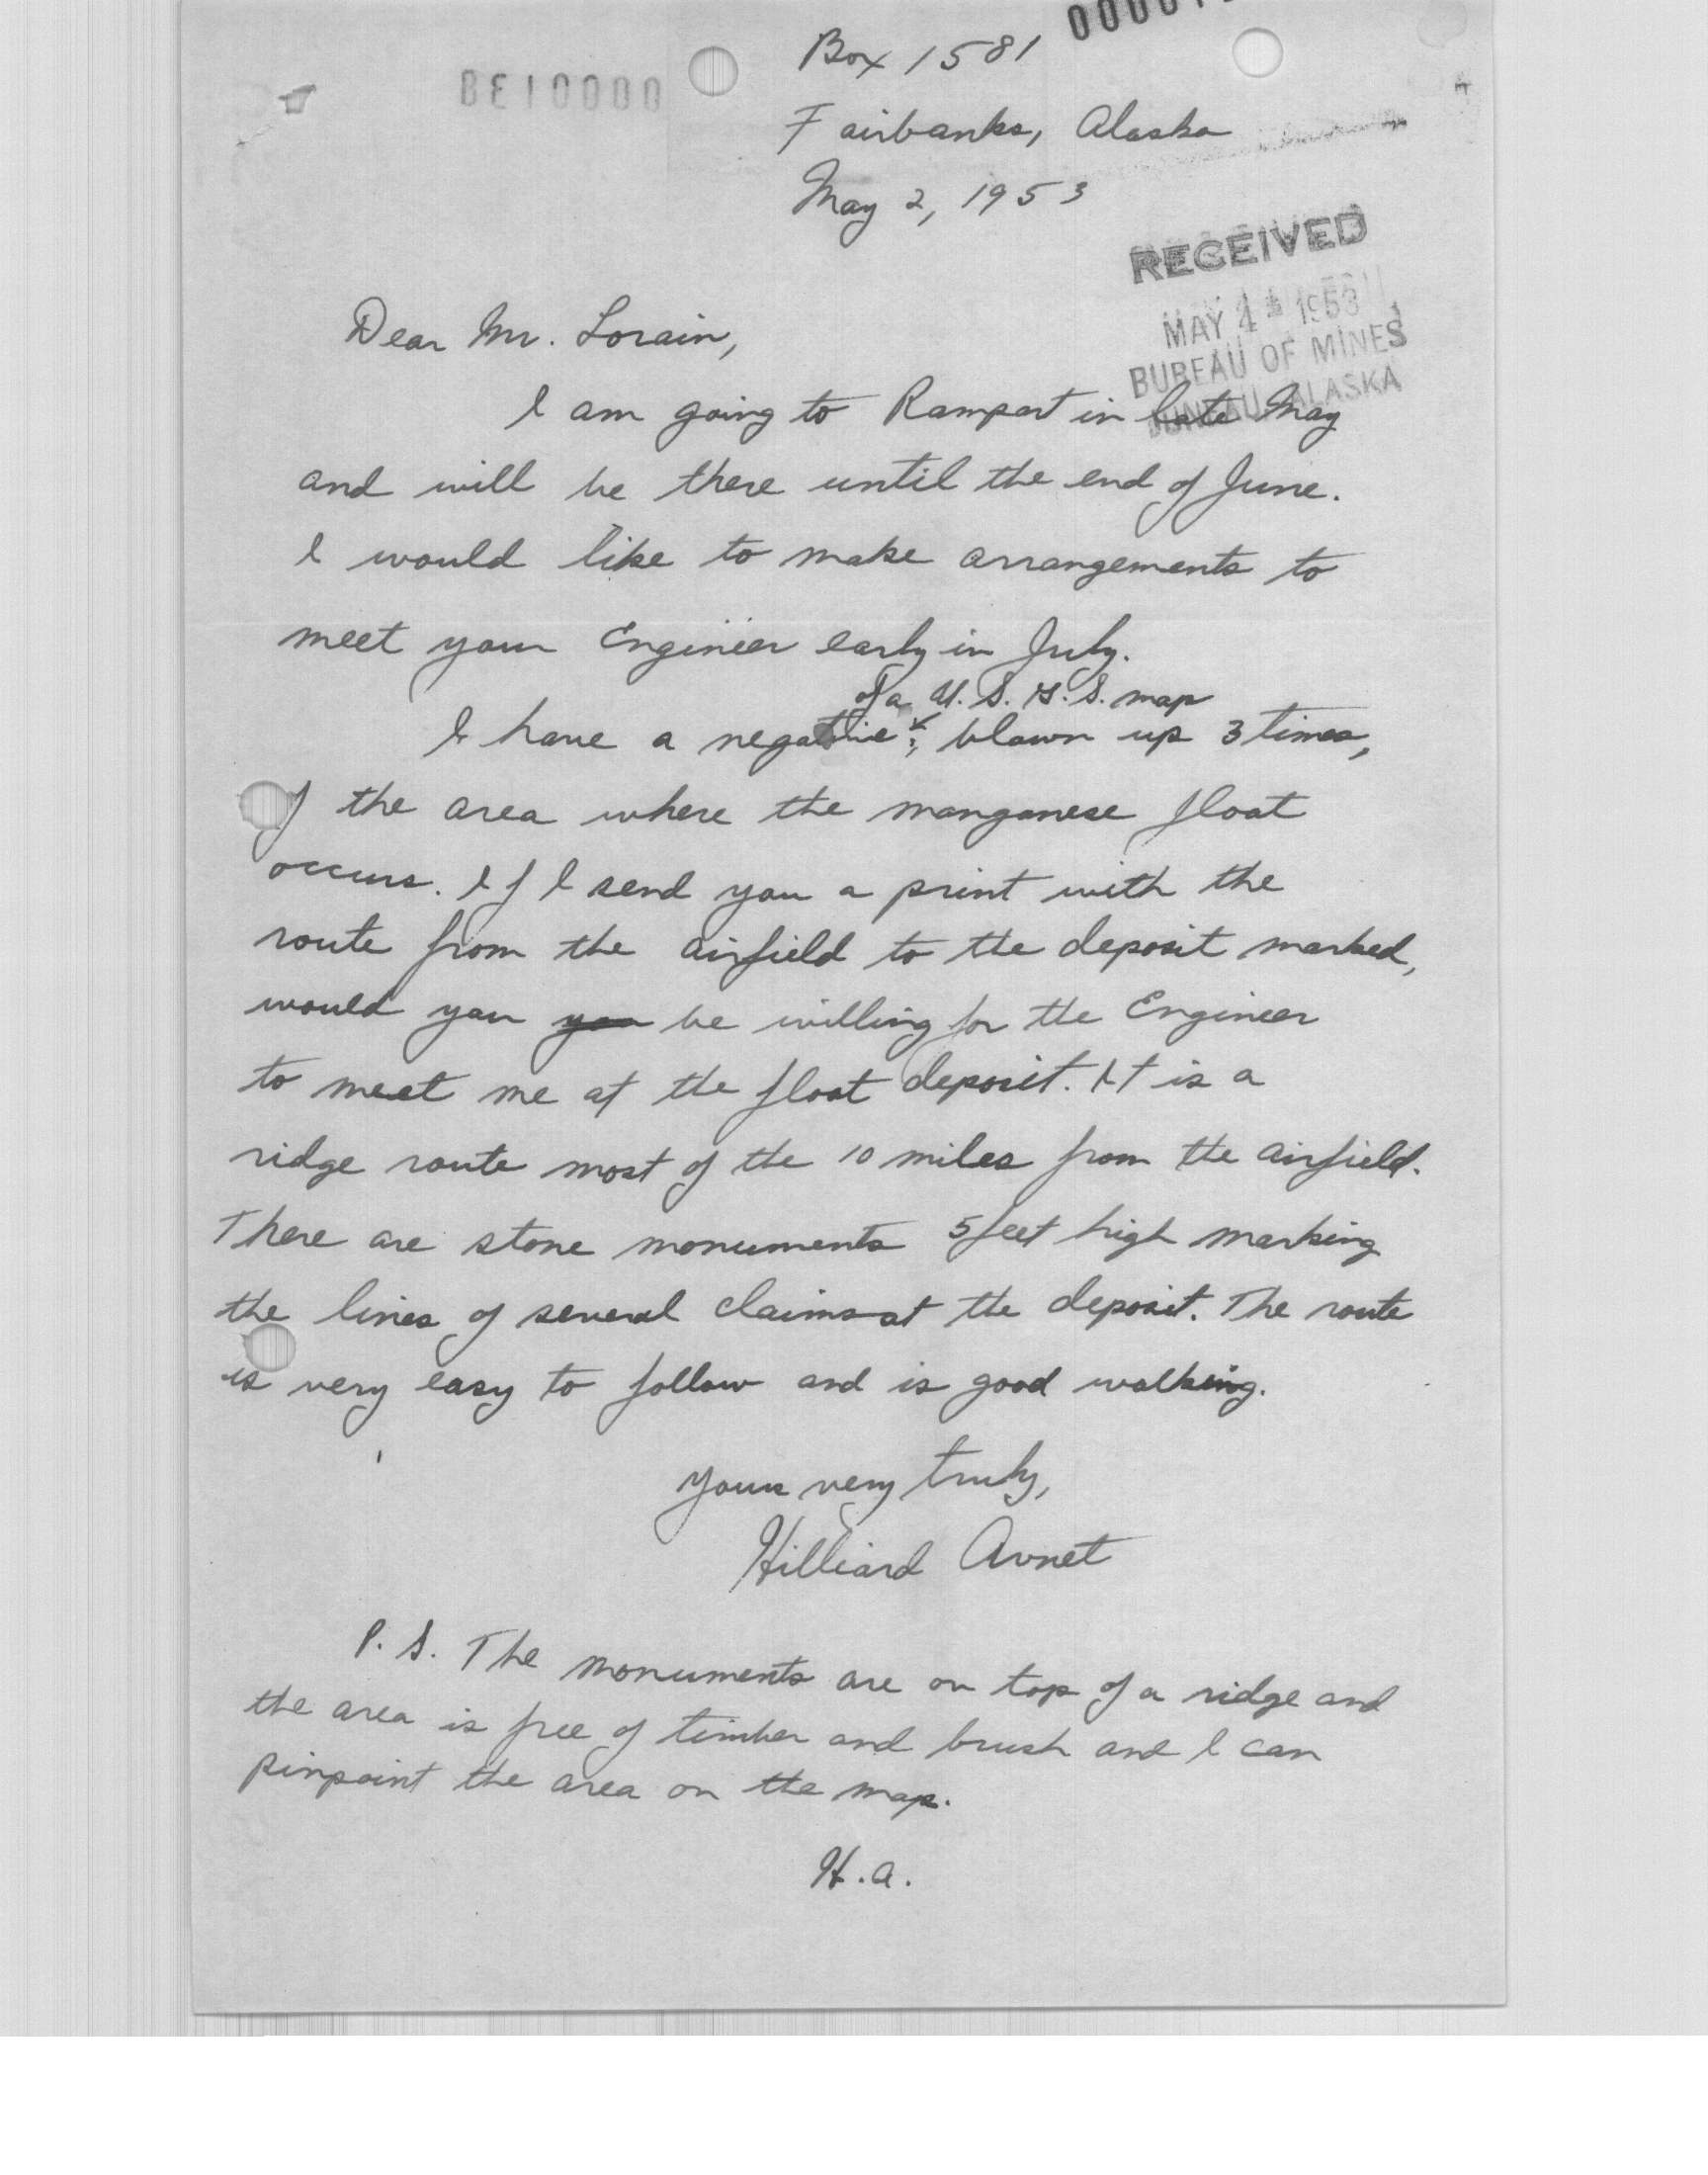 Box 1581
Fairbanks, Alaska
May 2, 1953
RECEIVED
MAY 4 1953
BUREAU OF MINES
JUNEAU, ALASKA
Dear Mr. Lorain,
I am going to Rampart in late May
and will be there until the end of June.
I would like to make arrangements to
meet your Engineer early in July.
of a U.S.G.S. map
I have a negative, blown up 3 times,
of the area where the manganese float
occurs. If I send you a print with the
route from the airfield to the deposit marked,
would you you be willing for the Engineer
to meet me at the float deposit. It is a
ridge route most of the 10 miles from the airfield.
There are stone monuments 5 feet high marking
the lines of several claims at the deposit. The route
is very easy to follow and is good walking.
Yours very truly,
Hilliard Avnet
P.S. The monuments are on top of a ridge and
the area is free of timber and brush and I can
pinpoint the area on the map.
H.A.